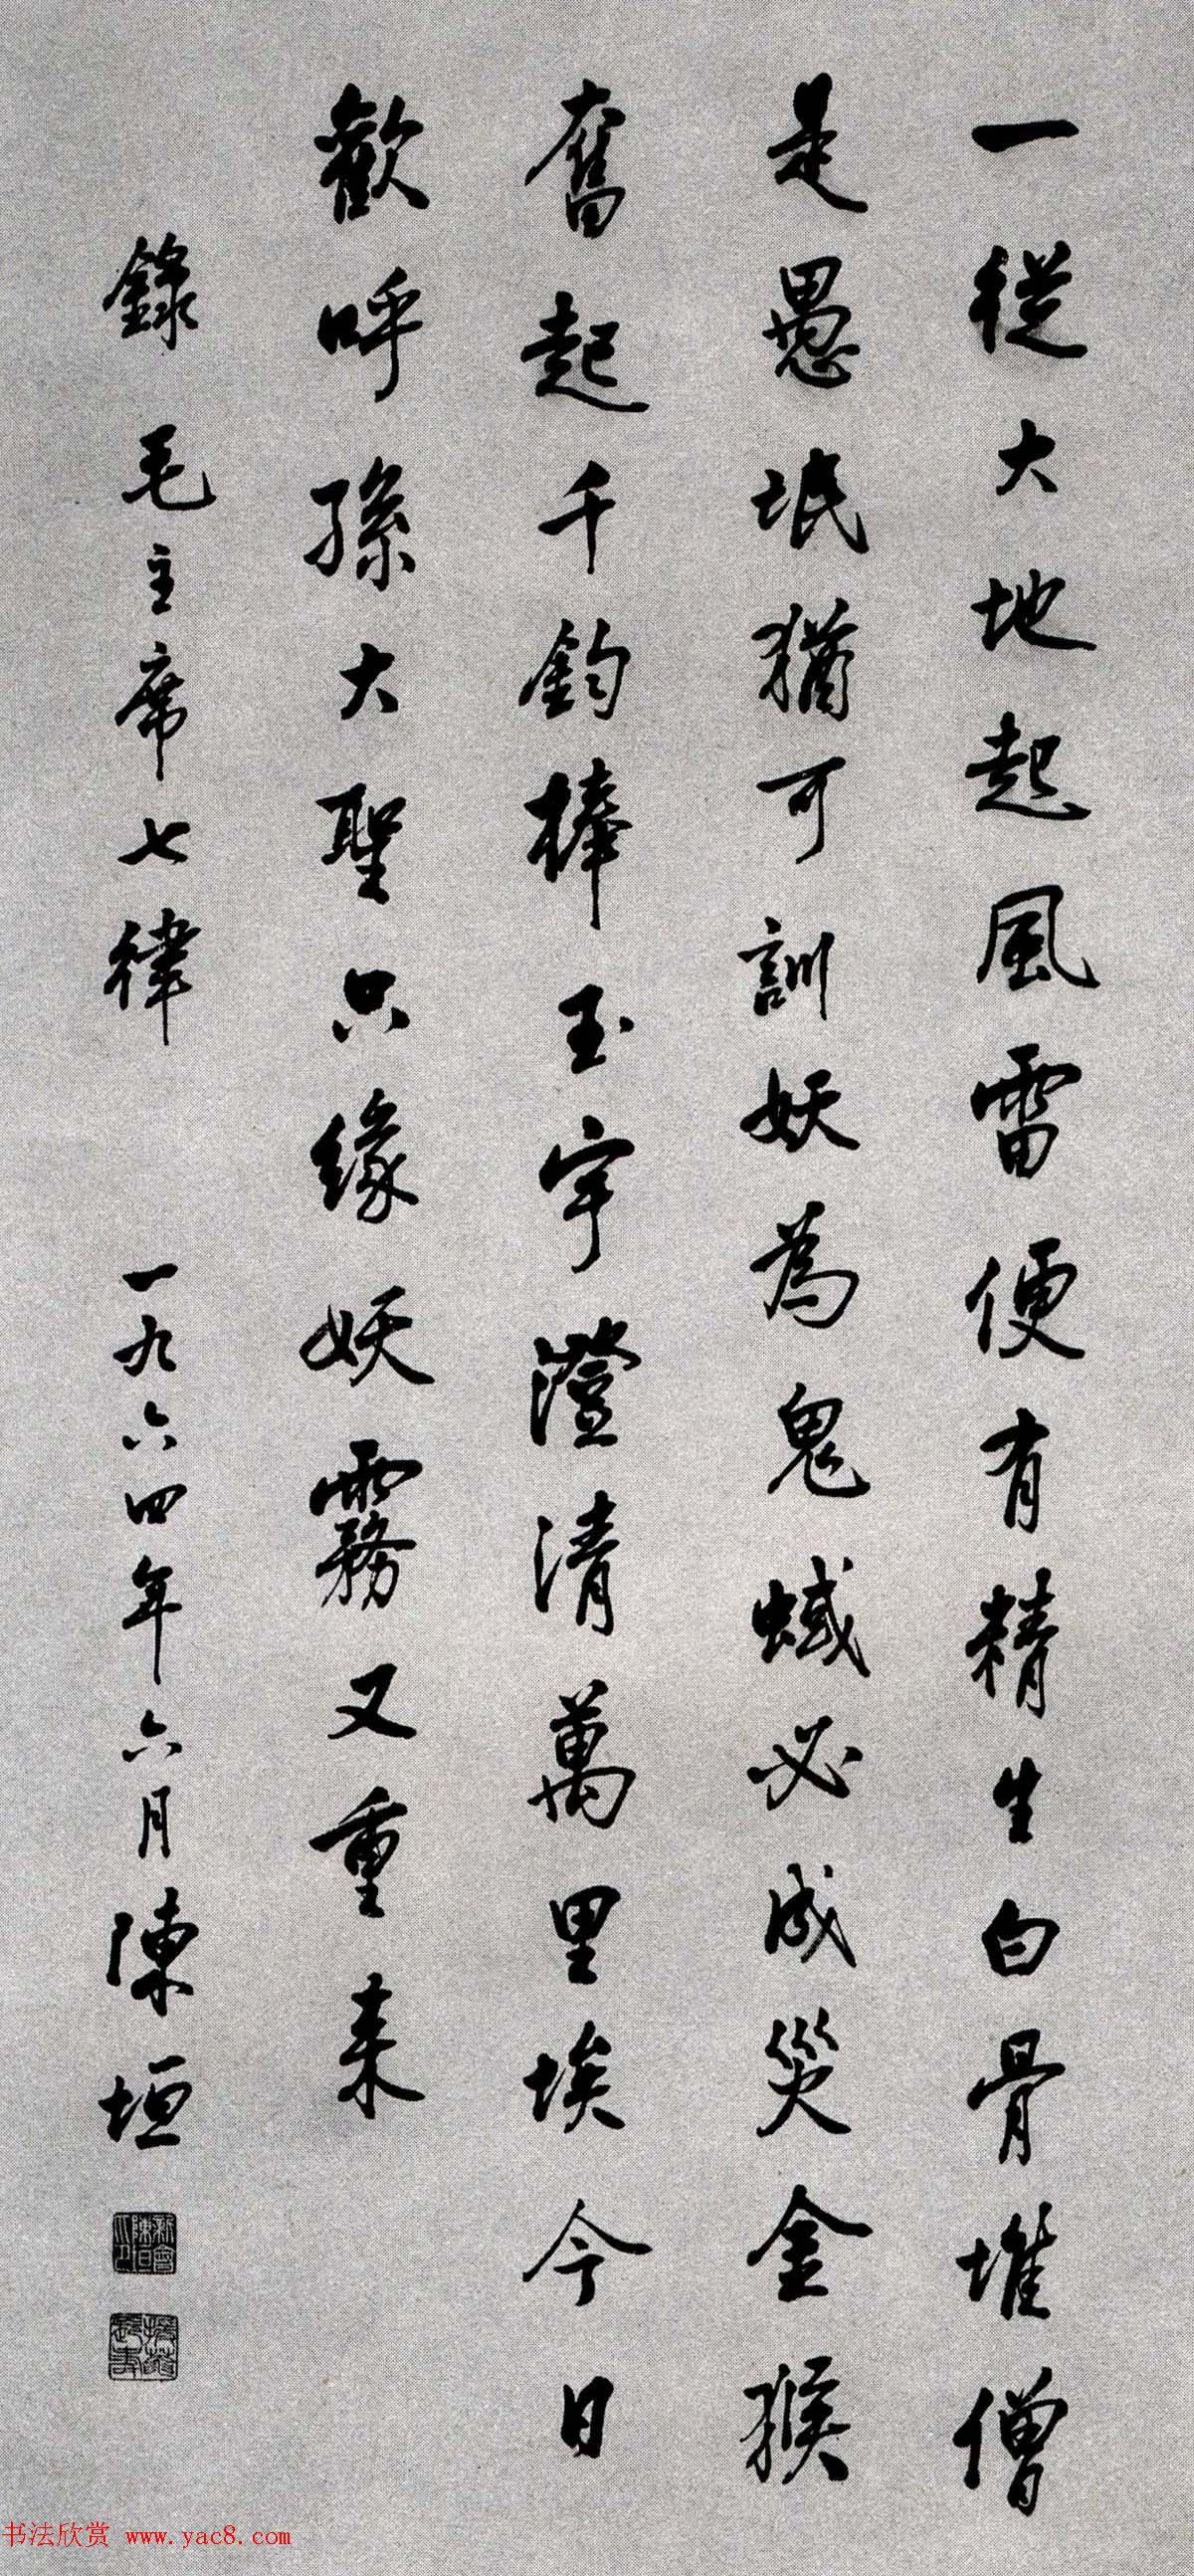 一從大地起風雷便有精生白骨堆僧
是愚氓猶可訓妖為鬼蜮必成災金猴
奮起千鈞棒玉宇澄清萬里埃今日
歡呼孫大聖只緣妖霧又重来
錄毛主席七律 一九六四年六月陳垣
书法欣赏 www.yac8.com